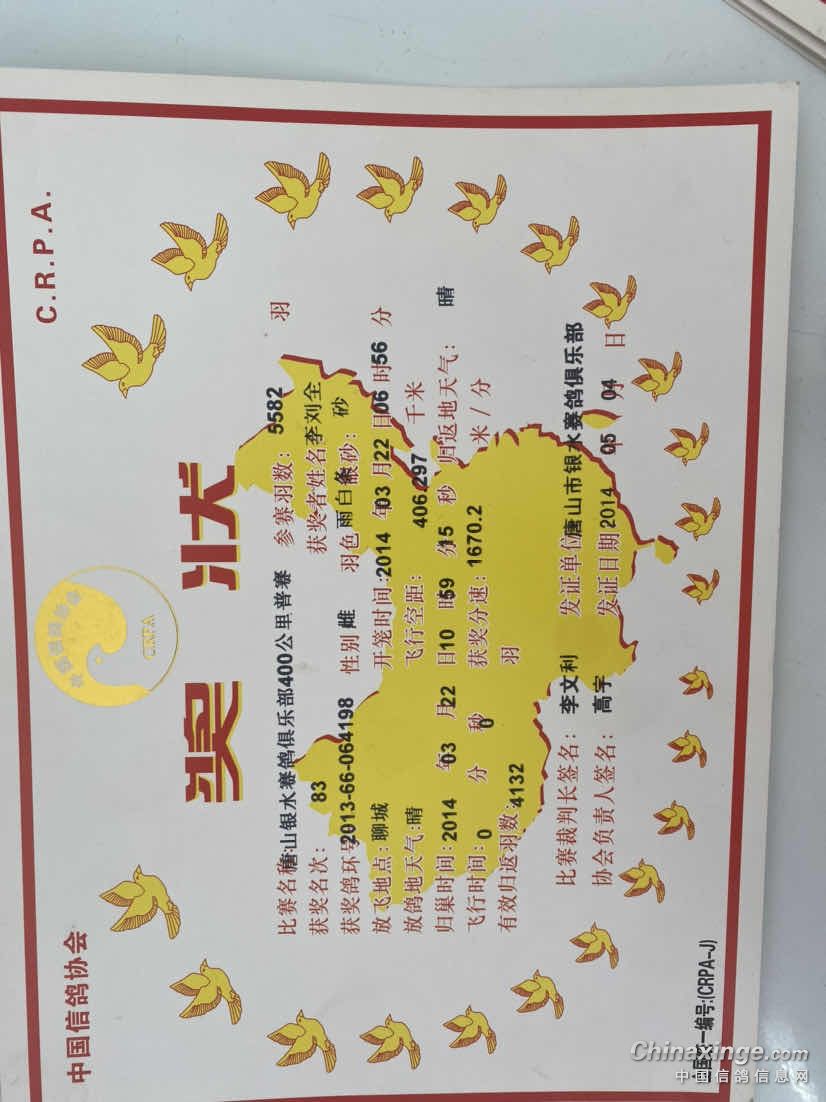 中国信鸽协会 C.R.P.A.
CRPA
奖状
比赛名称:唐山银水赛鸽俱乐部400公里普赛 参赛羽数: 5582 羽
获奖名次: 83 获奖者姓名:李刘全
获奖鸽环号2013-66-064198 性别 雌 羽色 雨白条 眼砂: 砂
放飞地点: 聊城 开笼时间:2014 年03 月22 日06 时56 分
放鸽地天气:晴 飞行空距: 406.297 千米
归巢时间: 2014 年03 月22 日10 时59 分15 秒 归返地天气: 晴
飞行时间: 0 分 0 秒 获奖分速: 1670.2 米/分
有效归返羽数:4132 羽
比赛裁判长签名: 李文利 发证单位唐山市银水赛鸽俱乐部
协会负责人签名: 高宇 发证日期 2014 年 05 月 04 日
一编号:(CRPA-J)
Chinaxinge.com
中国信鸽信息网